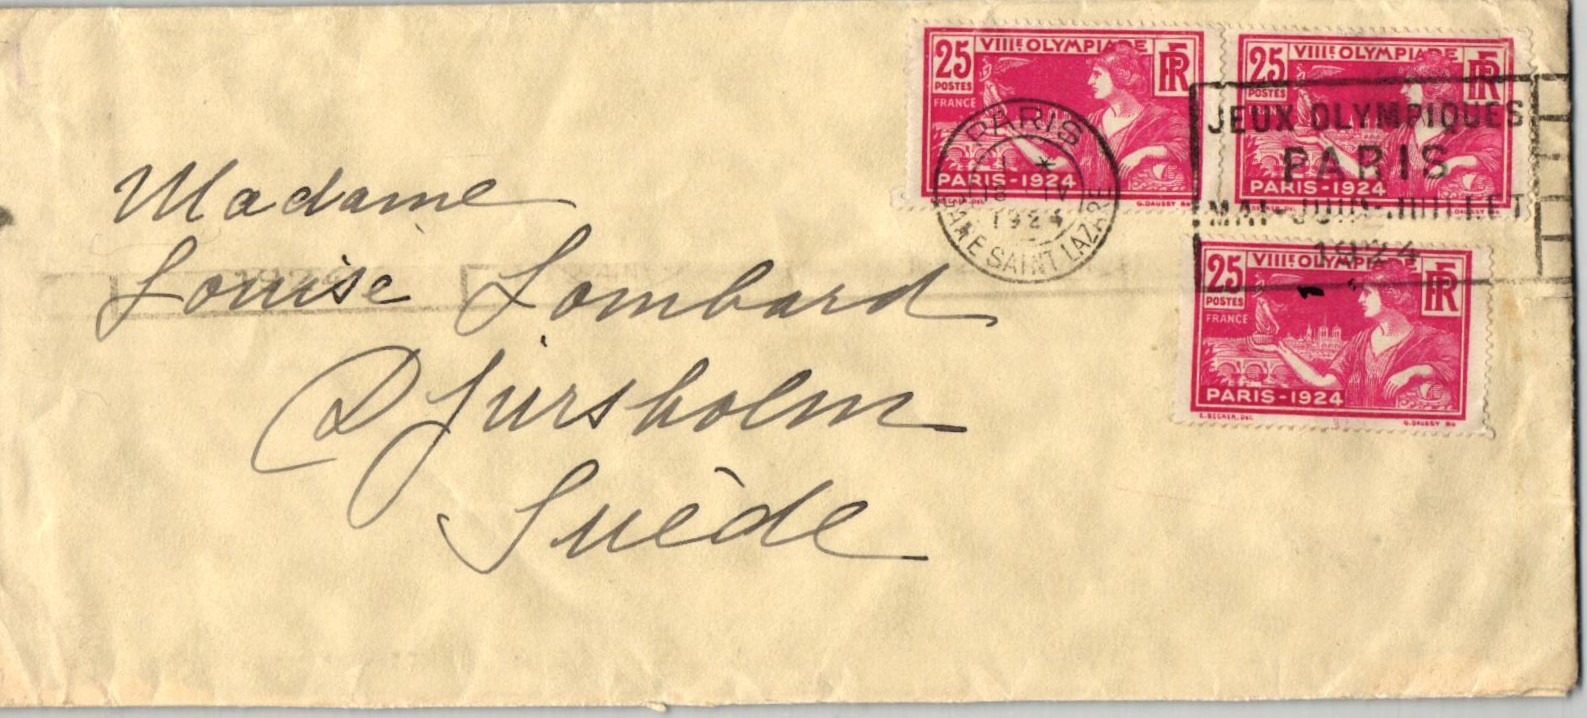 VIIIE OLYMPIADE
25
POSTES
FRANCE
RF
PARIS-1924
G.DAUSSY
VIIIE OLYMPIADE
25
POSTES
RF
PARIS-1924
G.DAUSSY
PARIS
1924
GARE SAINT LAZARE
JEUX OLYMPIQUES
PARIS
MAI-JUIN-JUILLET
1924
VIIIE OLYMPIADE
25
POSTES
FRANCE
RF
PARIS-1924
E.BECKER.DEL
G.DAUSSY
Madame
Louise Lombard
Djursholm
Suède
1924